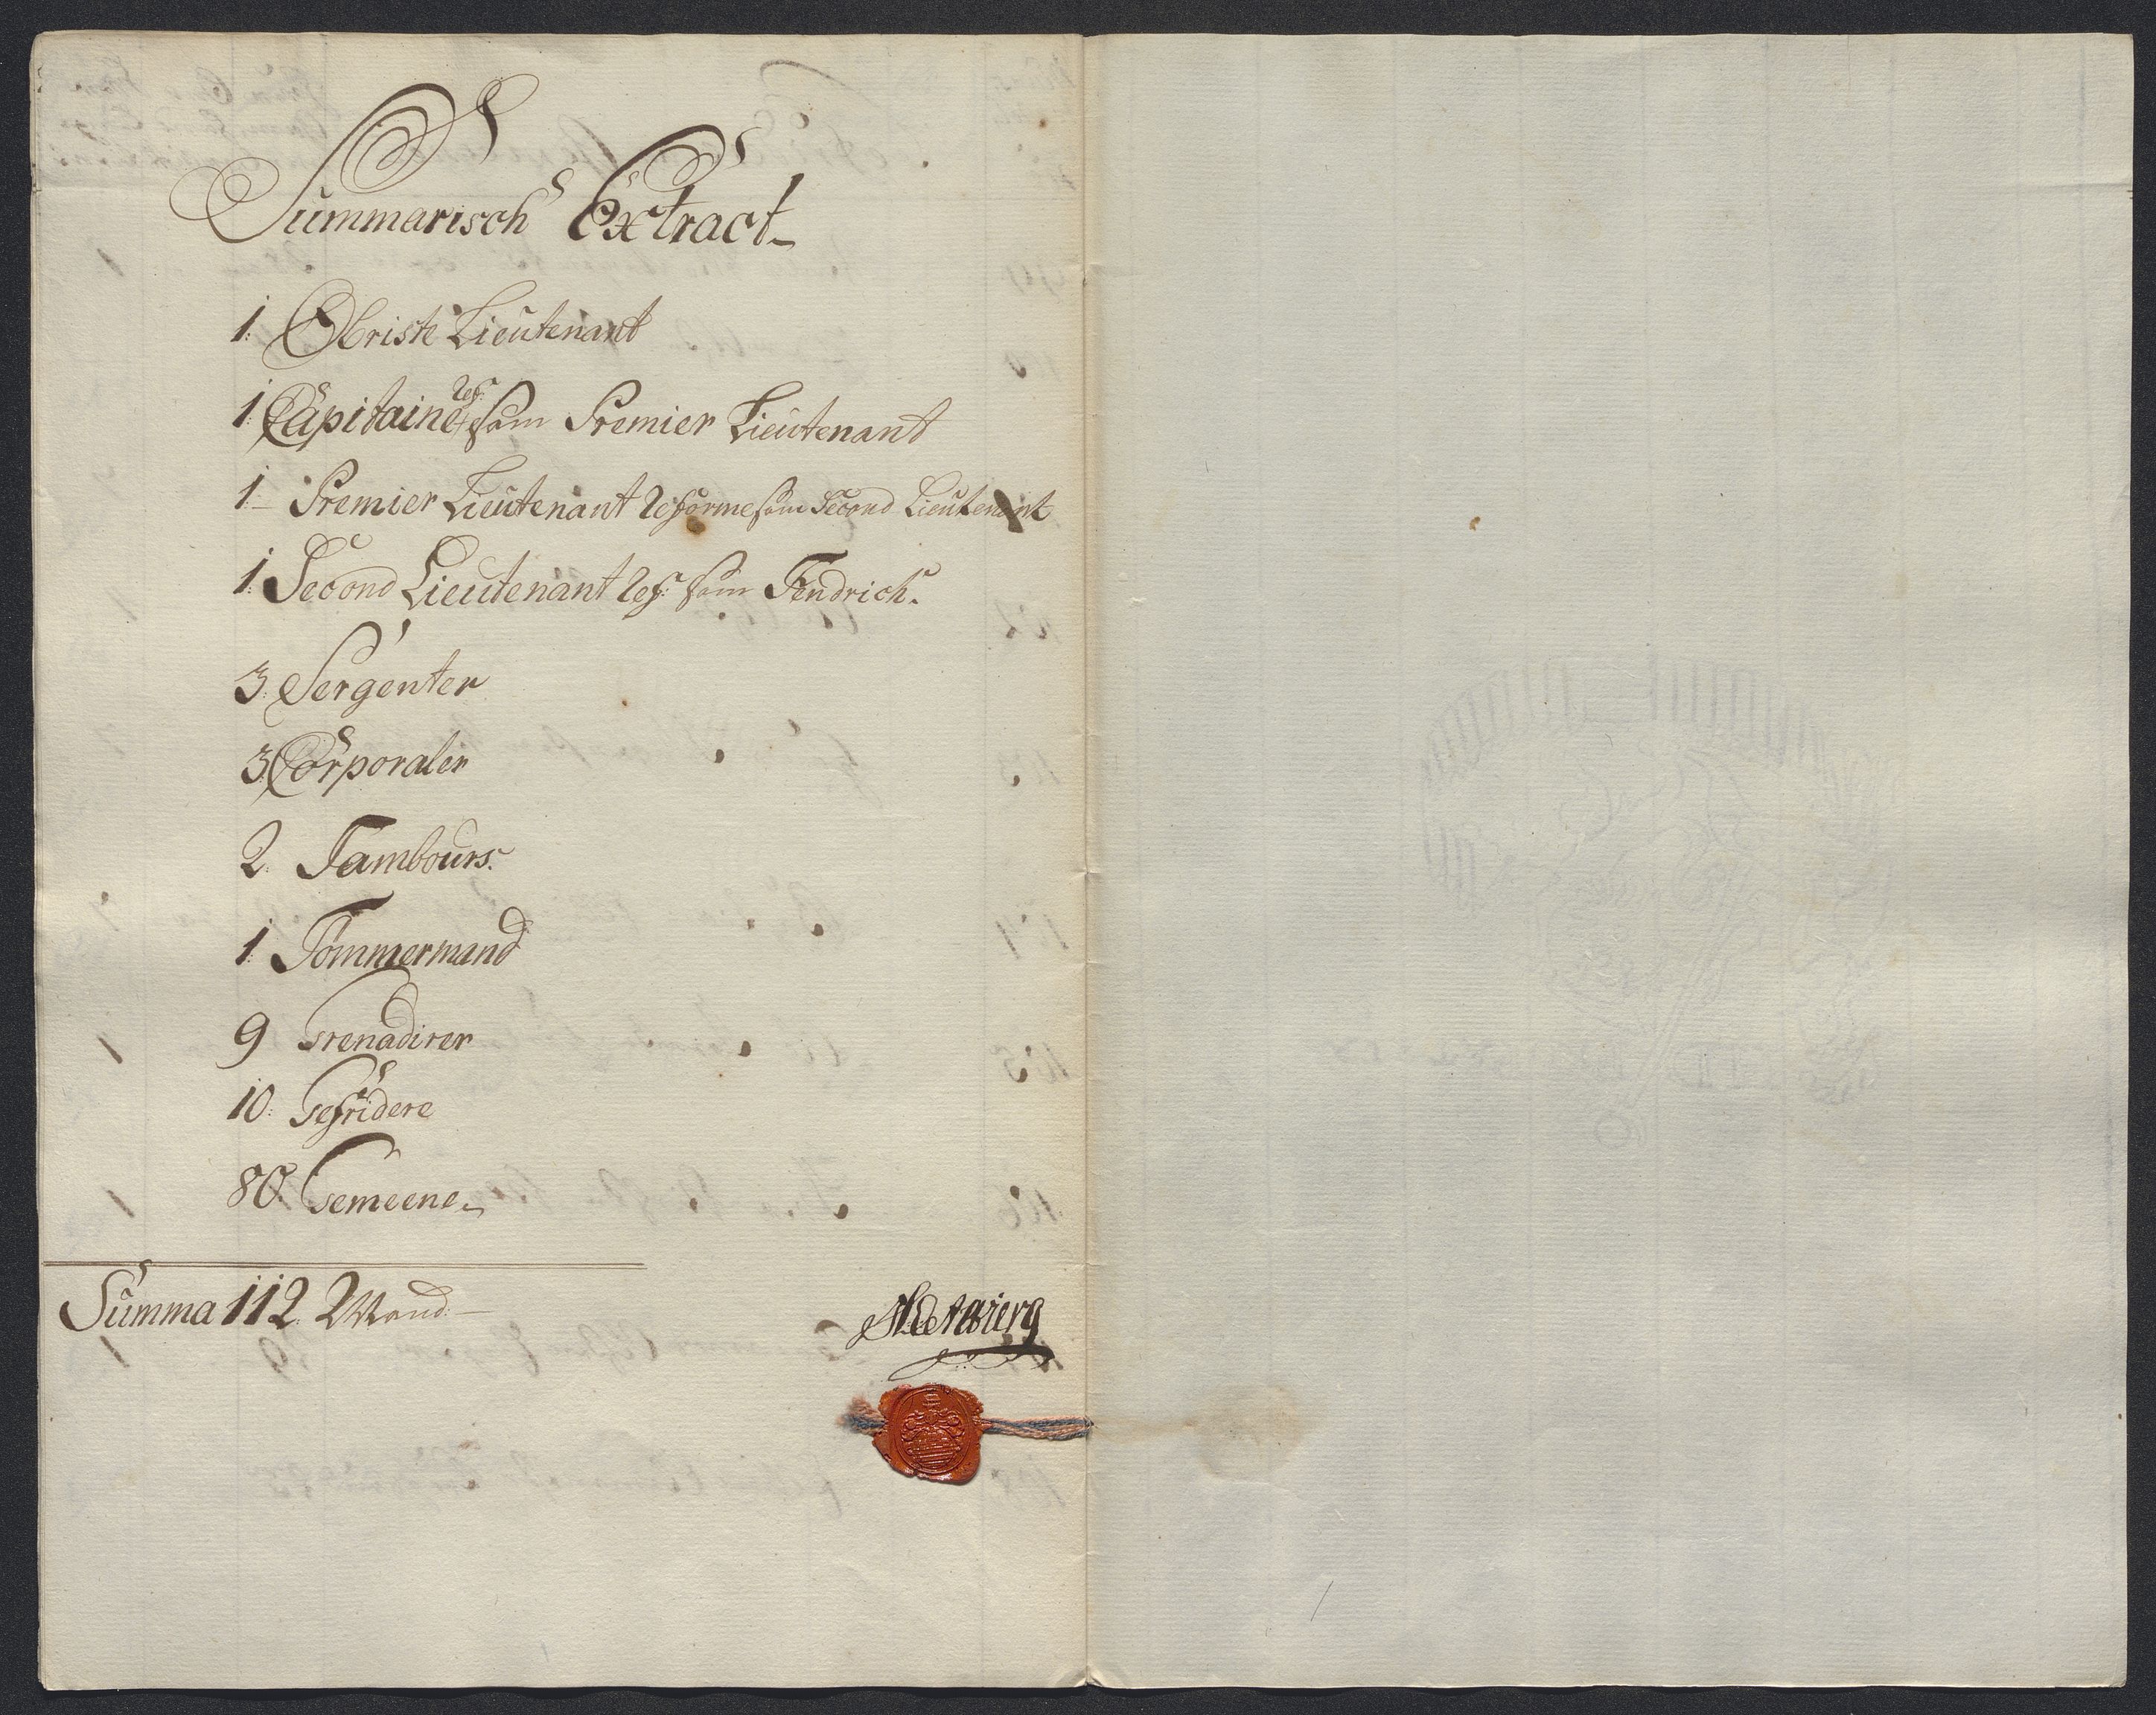 Summarisch Extract
1. Obriste Lieutenant
1. Capitaine ref: som Premier Lieutenant
1 Premier Lieutenant reforme som Second Lieutenant
1. Second Lieutenant ref: som Fendrich.
3. Sergenter
3. Corporaler
2. Tambours.
1. Tömmermand
9 Grenadirer
10. Gefridere
80. Gemeene
Summa 112 Mand